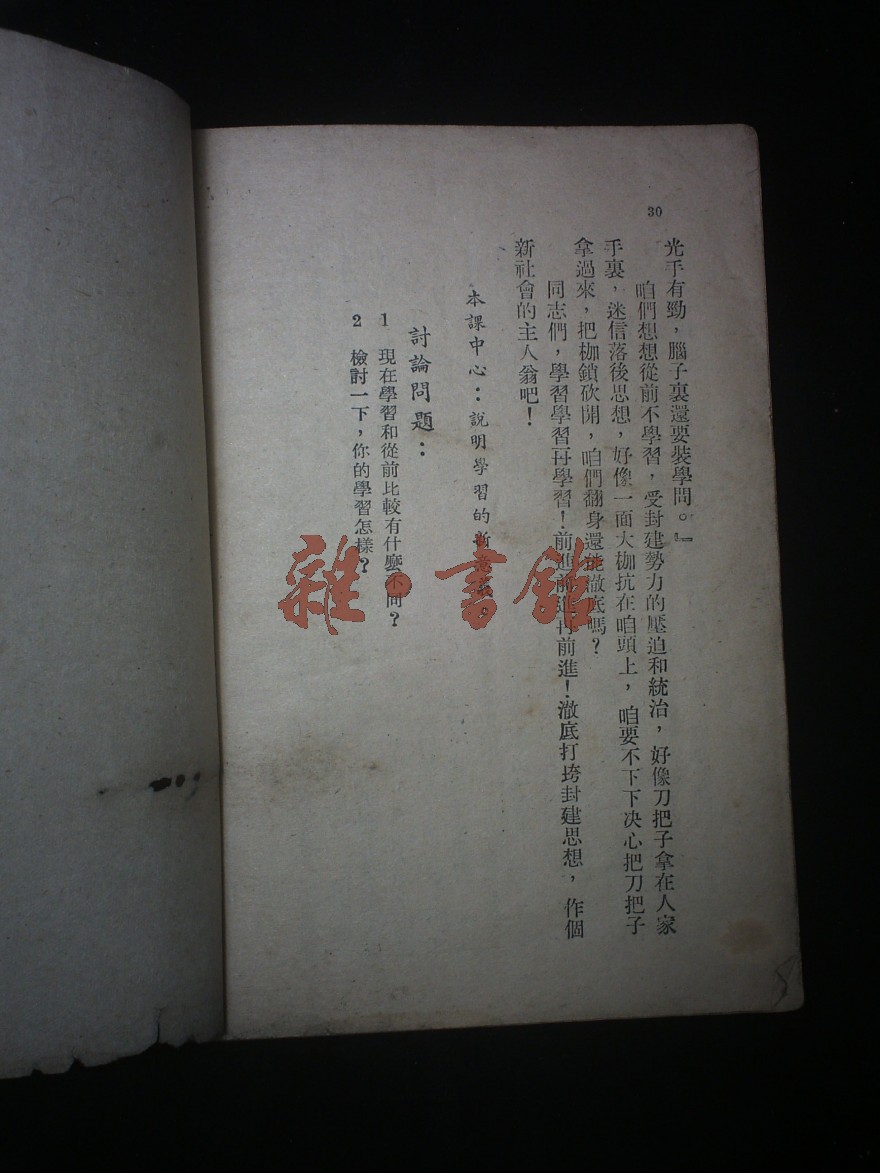 30
光手有勁，腦子裏還要裝學問。』
咱們想想從前不學習，受封建勢力的壓迫和統治，好像刀把子拿在人家
手裏，迷信落後思想，好像一面大枷抗在咱頭上，咱要不下下决心把刀把子
拿過來，把枷鎖砍開，咱們翻身還能澈底嗎？
同志們，學習學習再學習！前進前進再前進！澈底打垮封建思想，作個
新社會的主人翁吧！
本課中心：說明學習的新
討論問題：
1 現在學習和從前比較有什麼不同？
2 檢討一下，你的學習怎樣？
雜·書館